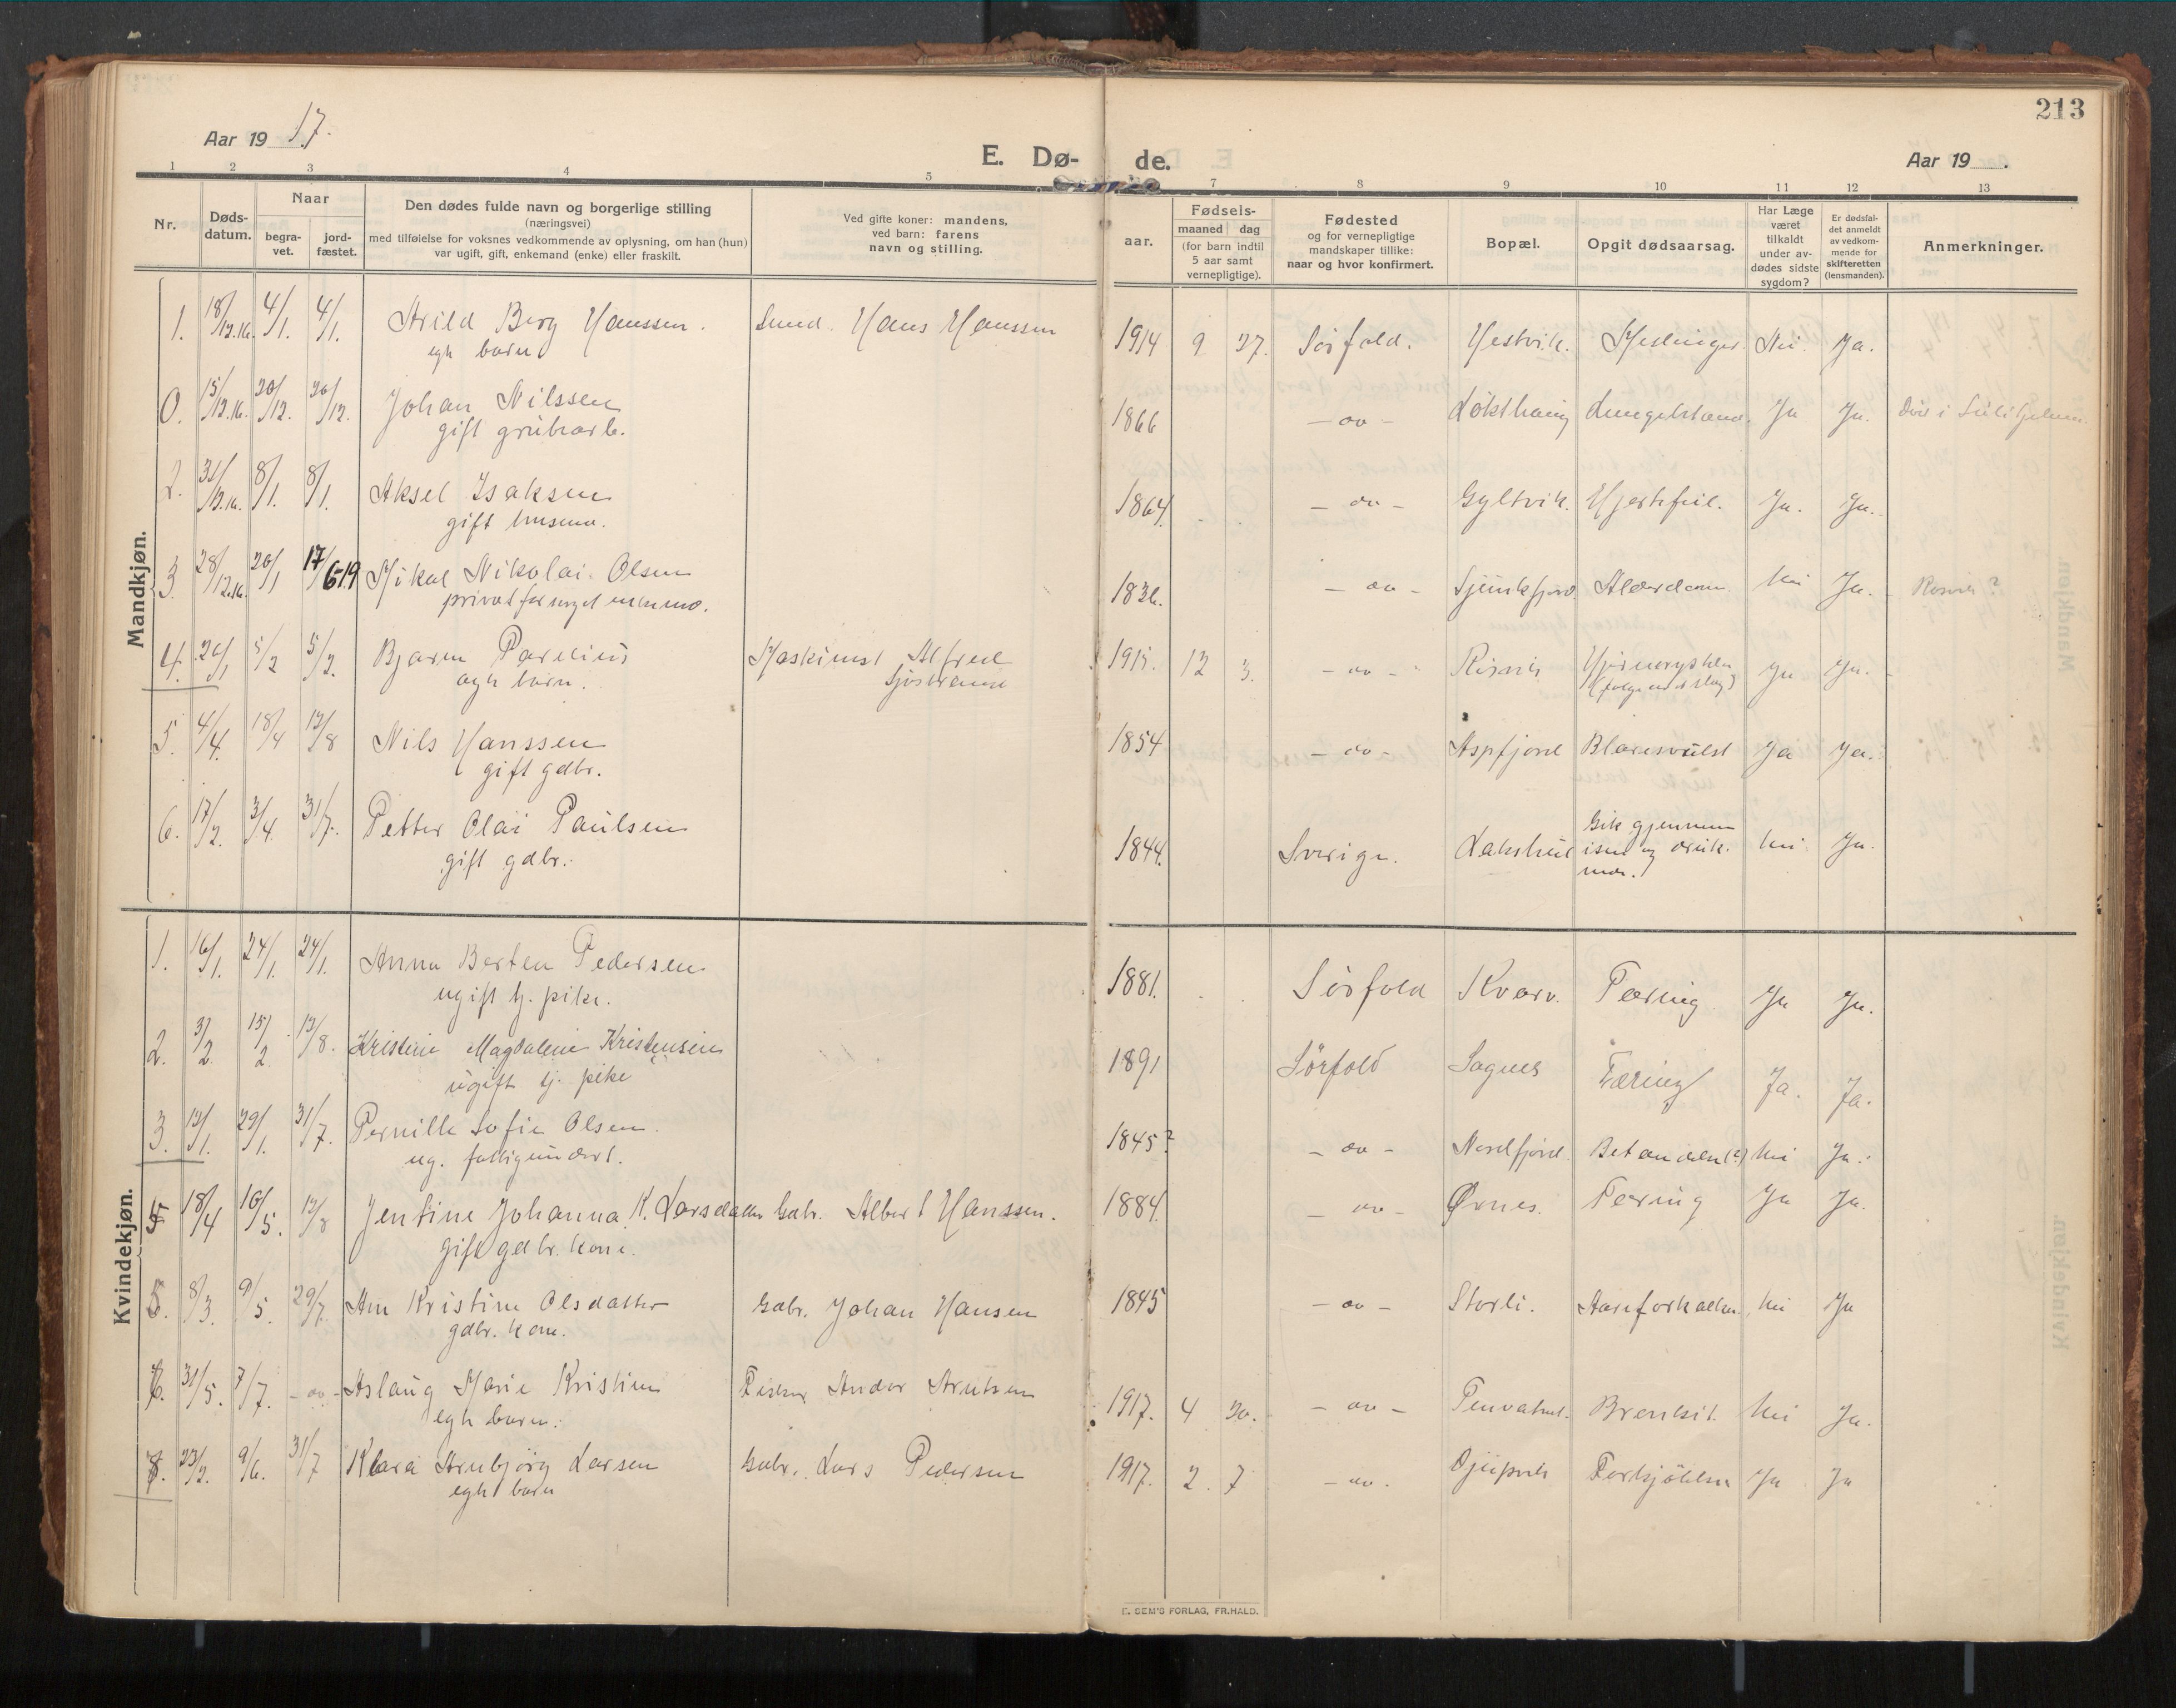 213
Aar 19 17.
E. Dø- de.
Aar 19 .
1 2 3 4 5 7 8 9 10 11 12 13
Nr.
Døds-
datum.
Naar
begra-
vet.
jord-
fæstet.
Den dødes fulde navn og borgerlige stilling
(næringsvei)
med tilføielse for voksnes vedkommende av oplysning, om han (hun)
var ugift, gift, enkemand (enke) eller fraskilt.
Ved gifte koner: mandens,
ved barn: farens
navn og stilling.
aar.
Fødsels-
maaned dag
(for barn indtil
5 aar samt
vernepligtige).
Fødested
og for vernepligtige
mandskaper tillike:
naar og hvor konfirmert.
Bopæl.
Opgit dødsaarsag.
Har Læge
været
tilkaldt
under av-
dødes sidste
sygdom?
Er dødsfal-
det anmeldt
av vedkom-
mende for
skifteretten
(lensmanden).
Anmerkninger.
Mandkjøn.
1. 18/12.16. 4/1. 4/1. Arild Berg Hanssen. Hans Hanssen 1914 9 27. Sörfold. Hestvik. Nei Ja.
egte barn
0. 15/12.16. 20/12. 20/12. Johan Nilssen 1866 - do - Ja Ja. Död i Sulitjelma
gift grubearb.
2. 31/12.16. 8/1. 8/1. Aksel Isaksen 1864. - do - Gyltvik. Hjertefeil. Ja. Ja.
gift husmd.
3. 28/12.16. 20/1 17/6 19 Mikal Nikolai Olsen 1836. - do - Alderdom Nei Ja. Rosvik?
privat forsørget
4. 26/1 5/2 5/2. Bjarne Parelius Maskinist Alfred 1915. 12 3. - do - Risvik Hjernerystelse Ja Ja.
egte barn. Sjöstrand
5. 4/4. 18/4 12/8 Nils Hanssen 1854 - do - Aspfjord Blæresvulst Ja Ja.
gift gdbr.
6. 17/2. 3/4. 31/7. Petter Olai Paulsen 1844. Sverige. Lakshul Gik gjennem Nei Ja.
gift gdbr. isen og druk-
nede.
Kvindekjøn.
1. 16/1. 24/1. 24/1. Anna Berten Pedersen 1881. Sörfold Kvarv. Tæring Ja Ja.
ugift tj. pike.
2. 3/2. 15/2 12/8. Kristine Magdalene Kristensen 1891 Sörfold Sagnes Tæring Ja. Ja.
ugift tj. pike
3. 12/1. 29/1. 31/7. Pernille Sofie Olsen 1845? - do - Nordfjord. Nei Ja.
ug. fattigunderst.
18/4 16/5. 12/8 Jentine Johanna K. Larsdatter Gdbr. Albert Hanssen. 1884. - do - Ørnes. Tæring Ja Ja.
gift gdbr. kone.
5. 8/3. 9/5. 29/7. Ane Kristine Olsdatter Gdbr. Johan Hansen 1845 - do - Storli. Aareforkalkn. Nei Ja
gdbr. kone.
6. 31/5. 7/7. - do - Aslaug Marie Kristine Fisker Andor Arntsen 1917. 4 30. - do - Tennvatnet. Bronkit. Nei Ja.
egte barn.
23/2. 9/6. 31/7 Klara Arnbjörg Larsen Gdbr. Lars Pedersen 1917. 2. 7 - do. Djupvik Forkjölelse Ja Ja
egte barn
E. SEM'S FORLAG, FR.HALD.